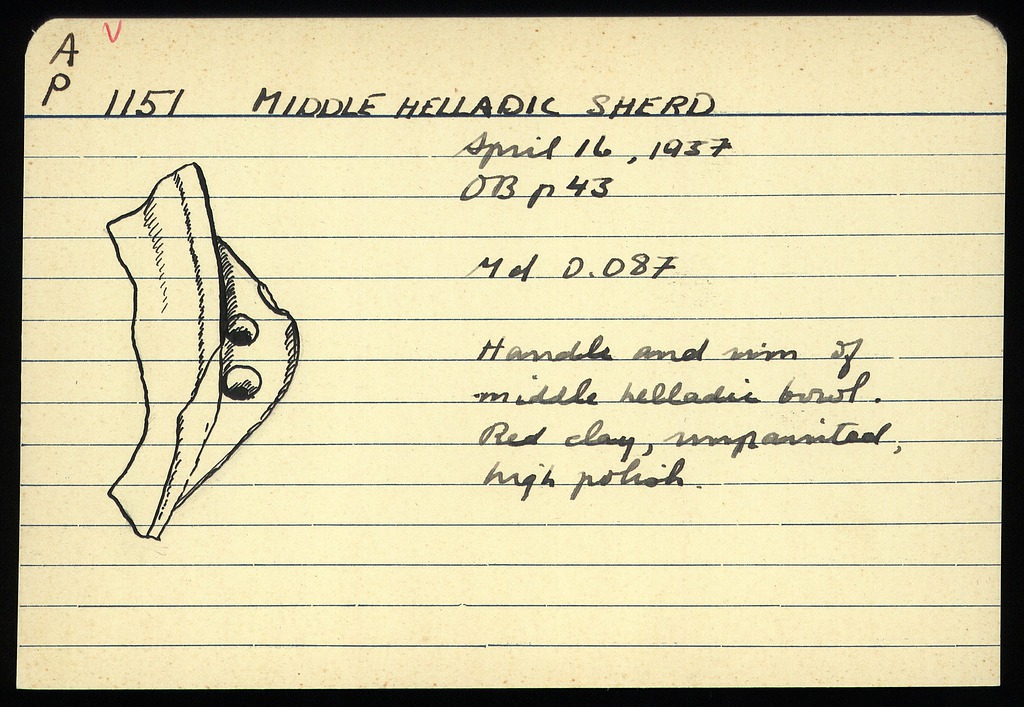 A
P 1151 MIDDLE HELLADIC SHERD
April 16, 1937
OB p 43
Md 0.087
Handle and rim of
middle helladic bowl.
Red clay, unpainted,
high polish.